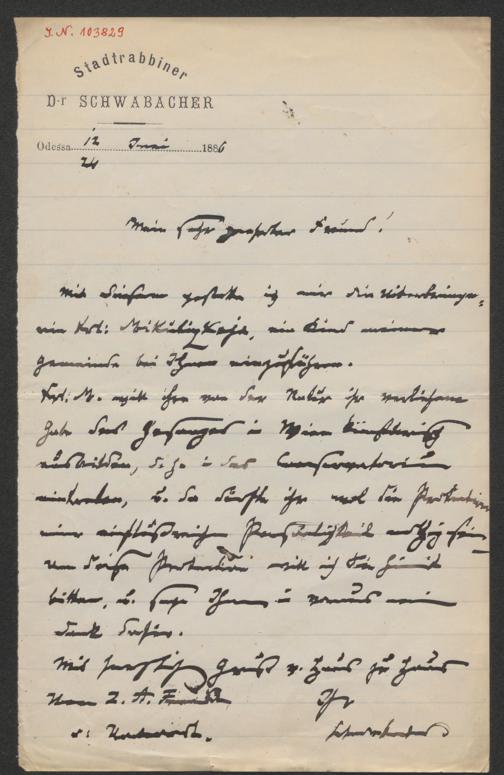 I.N. 103829
Stadtrabbiner
Dr SCHWABACHER
Odessa 12 Juni 1886
24
Mein sehr geehrter Freund!
Mit Diesem gestatte ich mir die Überbringe-
rin Frl: Mikulitzkaja, ein Kind meiner
Gemeinde bei Ihnen einzuführen.
Frl. M. will ihre von der Natur ihr verliehene
Gabe des Gesanges in Wien künstlerisch
ausbilden, d. h. in das Conservatorium
eintreten, u. da dürfte ihr wol die Protection
einer einflußreichen Persönlichkeit nöthig sein
um diese Protection will ich Sie hiemit
bitten, u. sage Ihnen im voraus meinen
Dank dafür.
Mit herzlichem Gruß v. Haus zu Haus
Ihr
Schwabacher